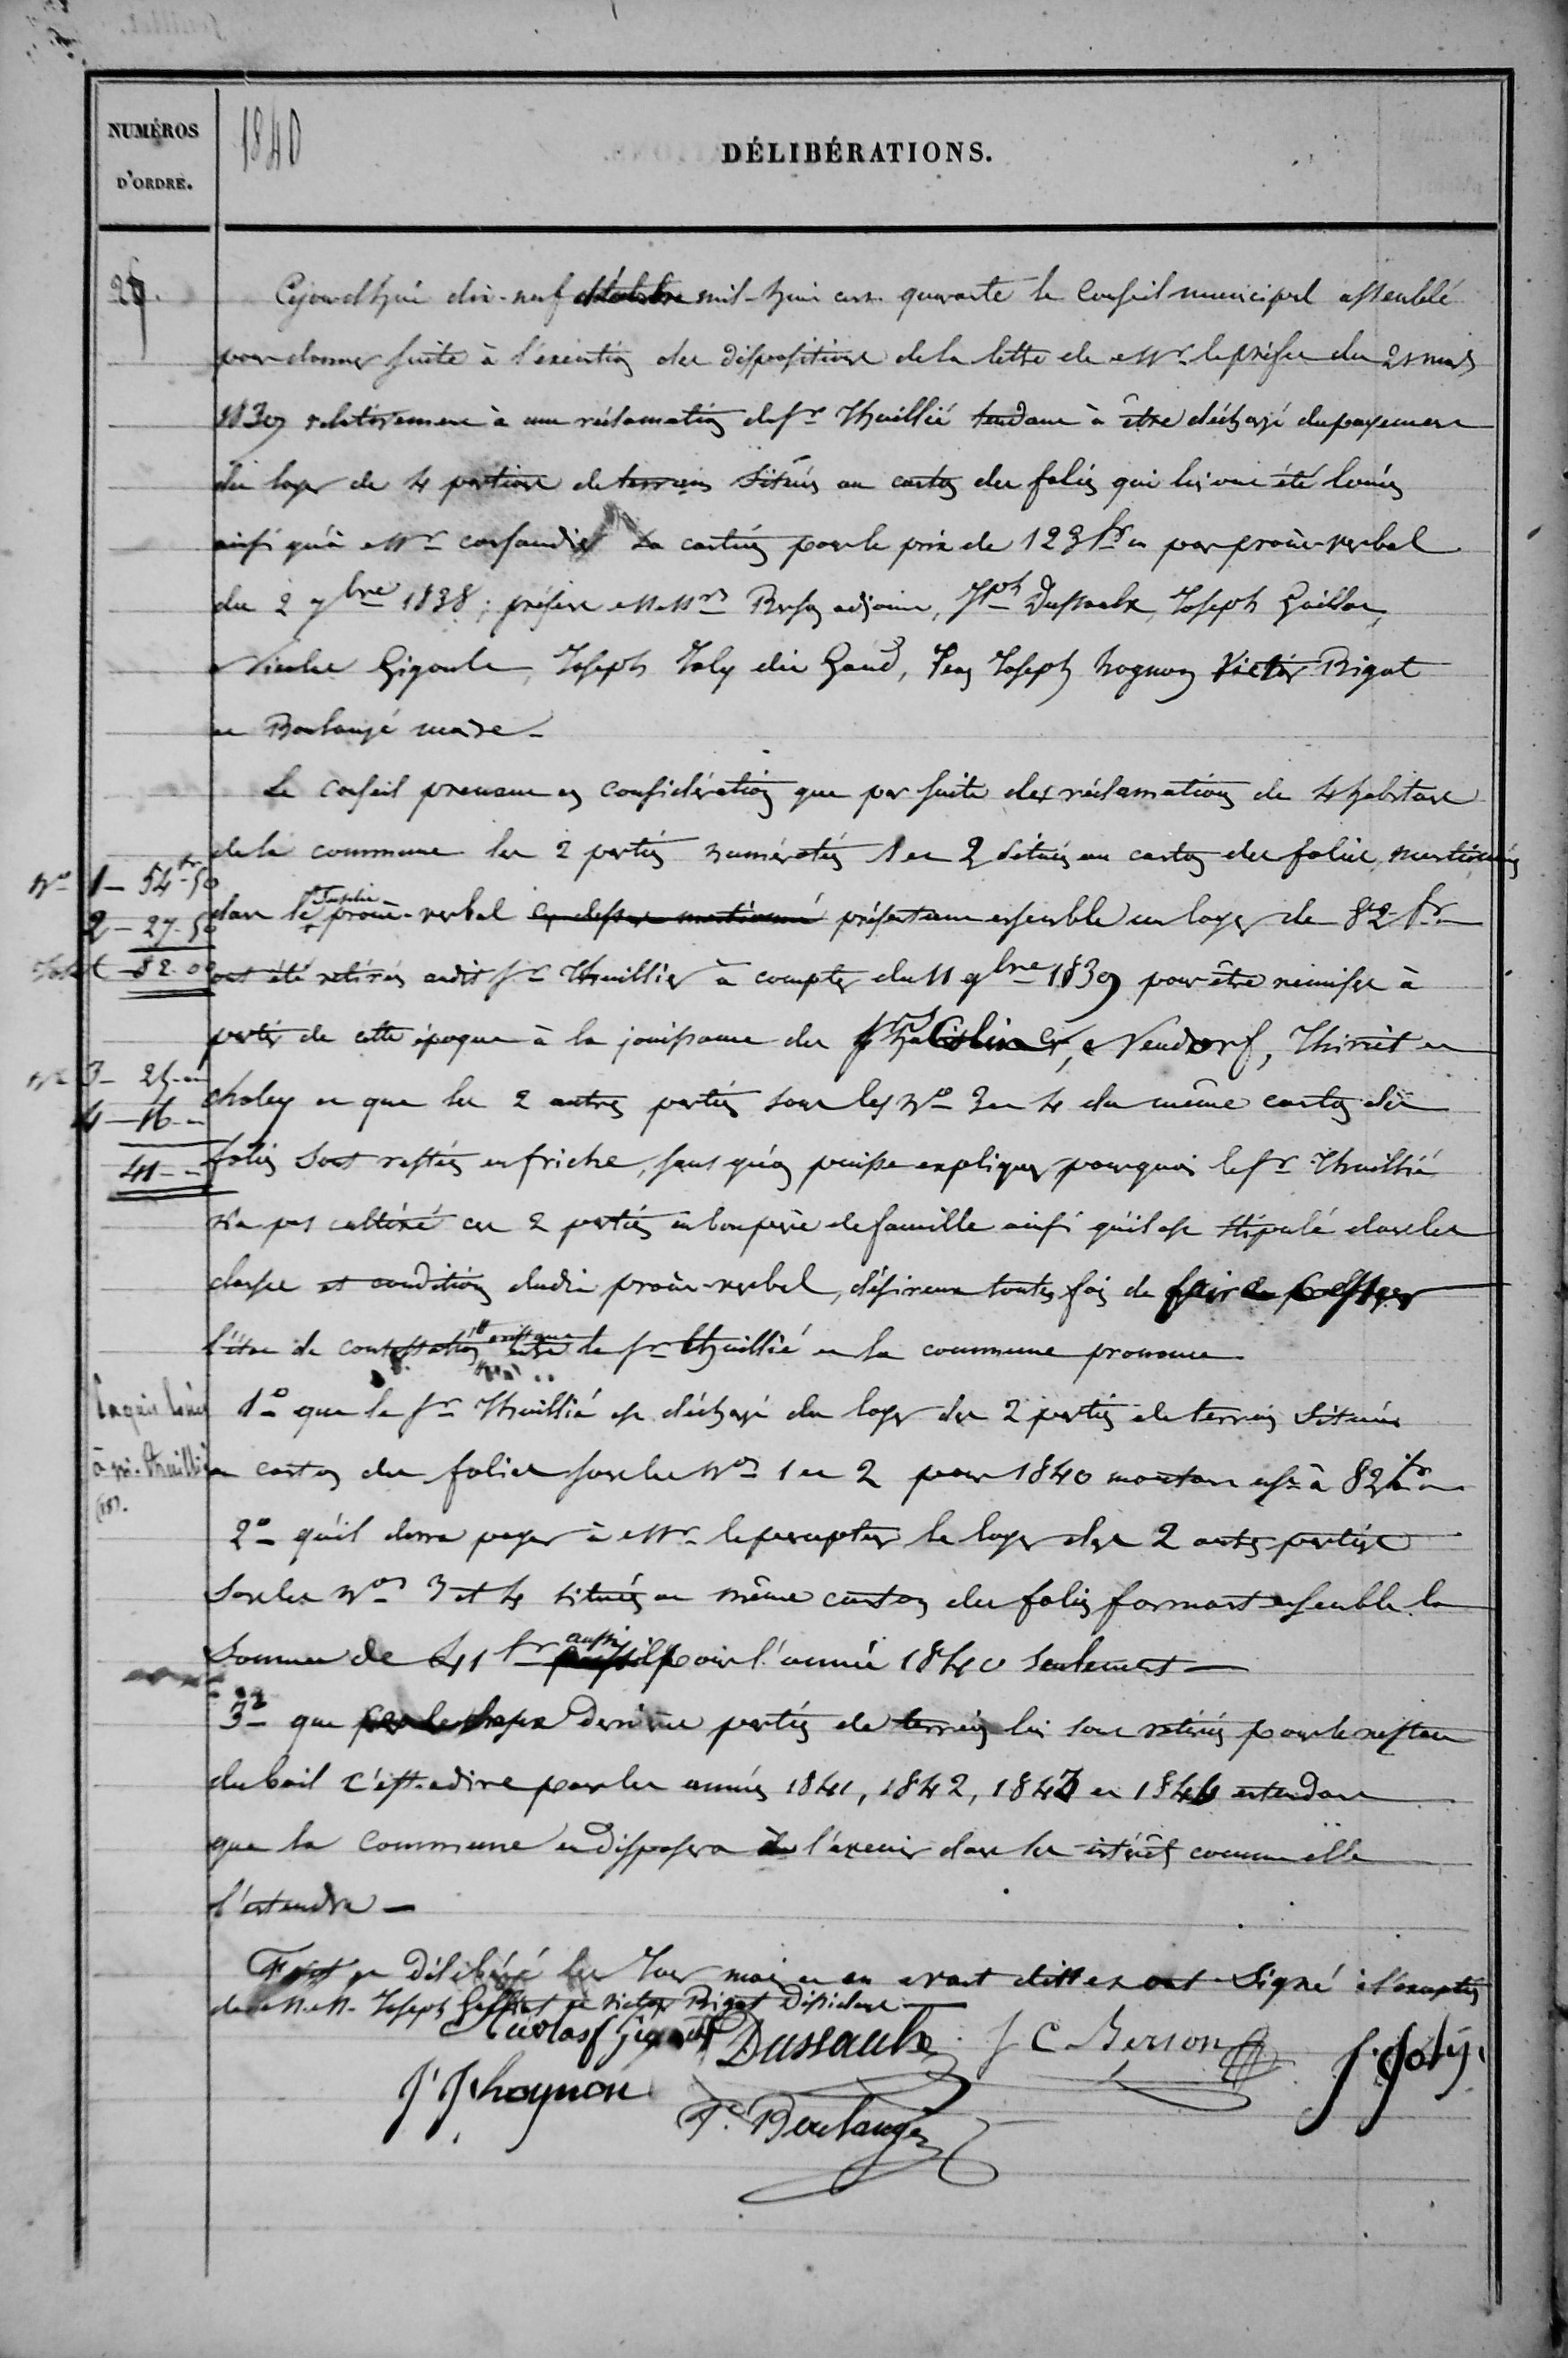 NUMÉROS
D'ORDRE.
1840
DÉLIBÉRATIONS.
27.
Cejourd'hui dix-neuf mil-huit cent quarante le Conseil municipal assemblé
pour donner suite à l'exécution des dispositions de la lettre de Mr. le préfet du 21 mars
1839 relativement à une réclamation du Sr. Thuillié tendant à être déchargé du payement
du loyer de 4 portions de terrains situés au canton des folies qui lui ont été louées
ainsi qu'à Mr. caution pour le prix de 123 fr. en par procès-verbal
du 2 7bre 1838; présens MMrs Berson adjoint, Jph Dussaulx, Joseph Gaillot,
Nicolas Gigout, Joseph Joly dit Gand, Jean Joseph hognon Victor Bigot
et Boulangé maire.
Le conseil prenant en considération que par suite des réclamations de 4 habitans
de la commune les 2 parties numérotées 1 et 2 situées au canton des folies, mentionnées
No 1 - 54 fr 50
dans le susdit procès-verbal ci-dessus mentionné présentant ensemble un loyer de 82 fr.
2 - 27.50
Total - 82.00
ont été retirées audit Sr. Thuillier à compter du 11 9bre 1839 pour être remises à
partir de cette époque à la jouissance des Srs Colin, Neudorf, Thiriet et
No 3 - 25 -
choley et que les 2 autres parties sous les No 3 et 4 du même canton des
4 - 16 -
folies sont restées en friche, sans qu'on puisse expliquer pourquoi le Sr. Thuillié
41 - -
n'a pas cultivé ces 2 parties en bon père de famille ainsi qu'il est stipulé dans les
clauses et conditions dudit procès-verbal, désireux toutes fois de faire cesser
l'état de contestation existant entre le Sr. Thuillié et la commune prononce
1o que le Sr. Thuillié est déchargé du loyer des 2 parties de terrains situées
Paquis loués
à Mr. Thuillié
au canton des folies sous les Nos 1 et 2 pour 1840 montant ense à 82 fr
2o qu'il devra payer à Mr. le percepteur le loyer des 2 autres parties
sous les Nos 3 et 4 situées au même canton des folies formant ensemble la
somme de 41 fr aussi pour l'année 1840 seulement
3o que dernières parties de terrains lui sont retirées pour le restant
du bail c'est-adire pour les années 1841, 1842, 1843 et 1844 entendant
que la commune en disposera à l'avenir dans ses intérêts comme elle
l'entendra
Fait et Délibéré les Jour mois et an avant dits et ont signé à l'exception
de MM. Joseph Gaillot et Victor Bigot
Nicolas Gigout Dussaulx J C Berson J. Joly.
J J hognon F. Boulangé